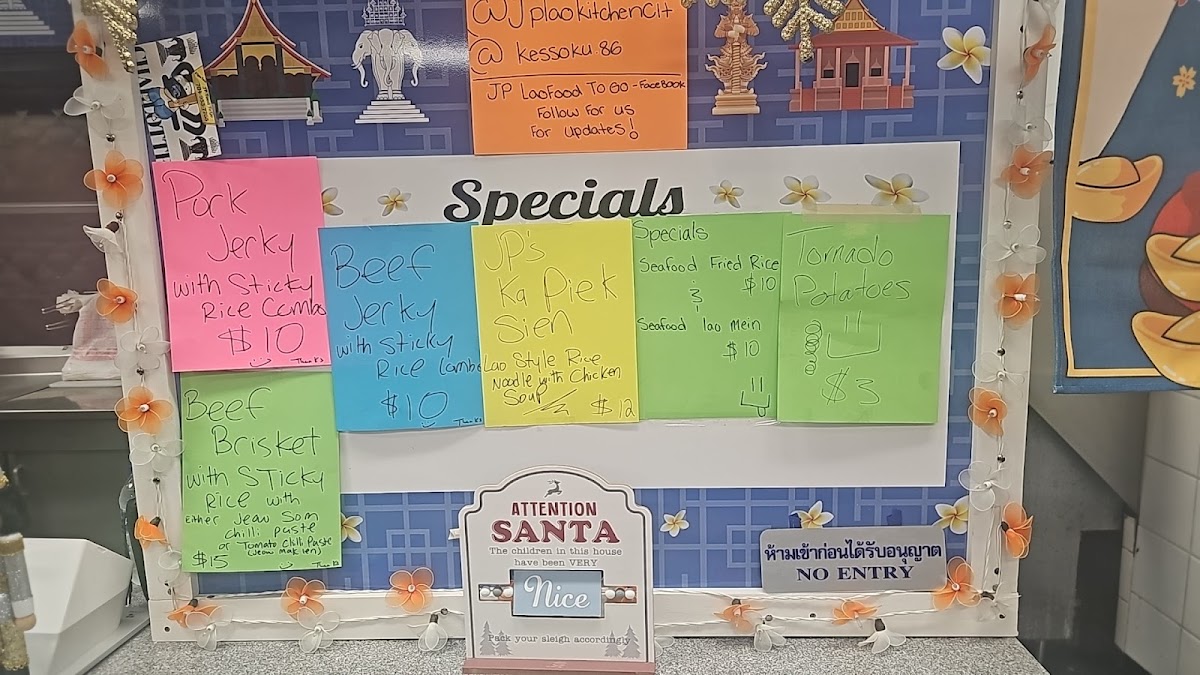 @Jplaokitchencit
@ kessoku86
JP LaoFood To GO - FaceBook
Follow for us
For updates!
Specials
Pork
Jerky
with Sticky
Rice Combo
$10
Thanks
Beef
Jerky
with sticky
Rice Combo
$10
Thanks
JP's
Ka Piek
Sien
Lao Style Rice
Noodle with Chicken
Soup
$12
Specials
Seafood Fried Rice
$10
&
Seafood lao mein
$10
Tornado
Potatoes
$3
Beef
Brisket
with STicky
Rice with
Either Jeaw Som
chilli paste
or Tomato chilli Paste
(Jeow mak len)
$15
ATTENTION
SANTA
The children in this house
have been VERY
Nice
Pack your sleigh accordingly
ห้ามเข้าก่อนได้รับอนุญาต
NO ENTRY